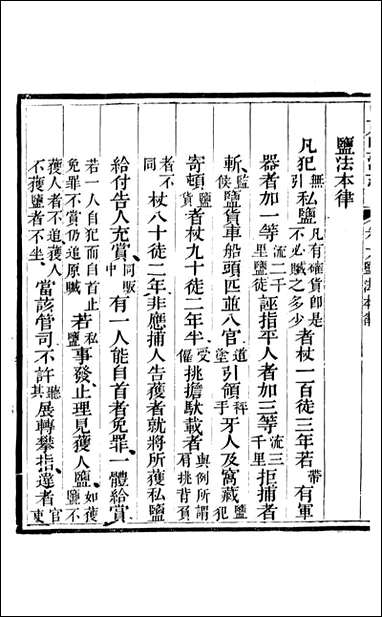 鹽法本律
鹽法本律
凡犯無引私鹽凡有確貨即是不必贓之多少者杖一百徒三年若帶有軍
器者加一等流二千里鹽徒誣指平人者加三等流三千里拒捕者
斬監候鹽貨車船頭匹並入官道塗引領秤手牙人及窩藏鹽犯
寄頓鹽貨者杖九十徒二年半受僱挑擔馱載者與例所謂肩挑背負
者不同杖八十徒二年非應捕人告獲者就將所獲私鹽
給付告人充賞同販中有一人能自首者免罪一體給賞
若一人自犯而自首止免罪不賞仍追原贓若私鹽事發止理見獲人鹽如獲鹽不
獲人者不追獲人不獲鹽者不坐當該管司不許聽其展轉攀指違者官吏